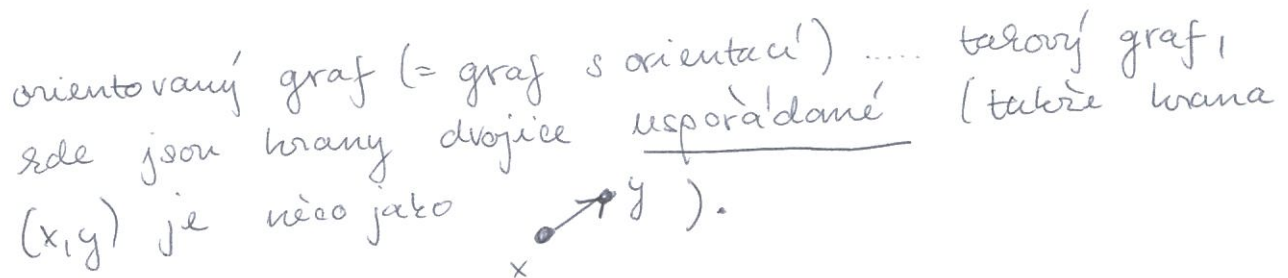 orientovaný graf (= graf s orientací) ..... takový graf,
kde jsou hrany dvojice uspořádané (takže hrana
(x,y) je něco jako x y ).